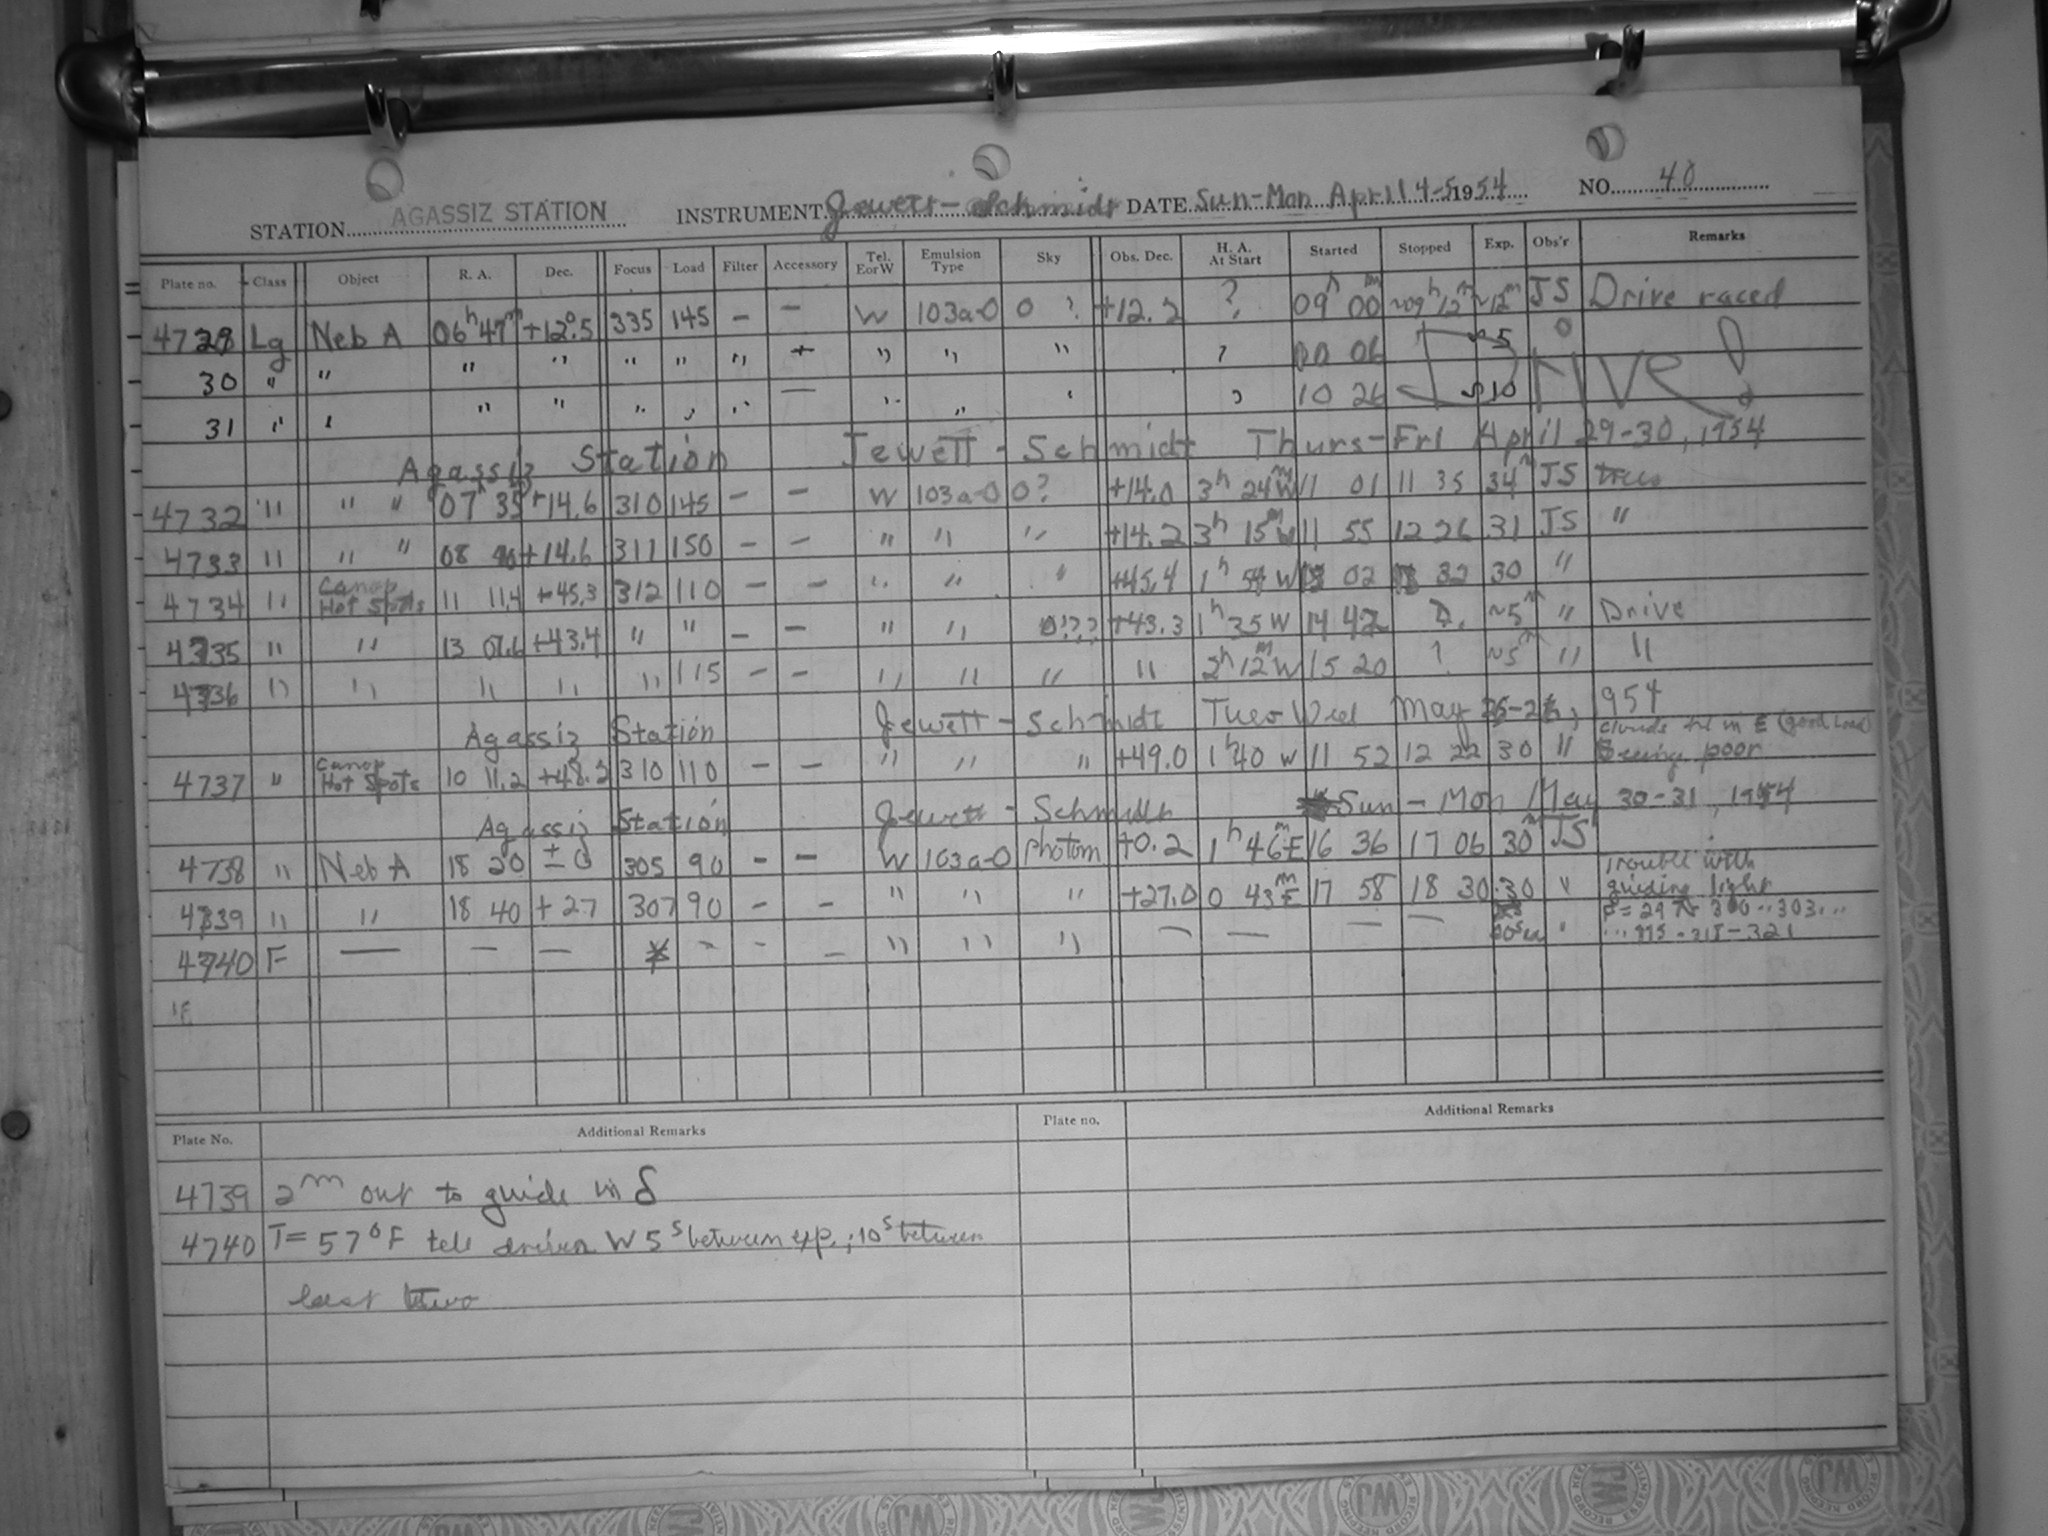 STATION AGASSIZ STATION INSTRUMENT Jewett-Schmidt DATE Sun-Mon April 4-5 1954 NO. 40
Plate no. Class Object R. A. Dec. Focus Load Filter Accessory Tel. E or W Emulsion Type Sky Obs. Dec. H. A. At Start Started Stopped Exp. Obs'r Remarks
4729 Lg Neb A 06h 47m +12°.5 335 145 - - W 103a-O 0 ? +12.2 ? 09h 00m ~09h 12m ~12m JS Drive raced
30 " " " " " " " " " " ? 06 5
31 " " " " " " " — " " ? 10 26 10 Drive
Agassiz Station Jewett-Schmidt Thurs-Fri April 29-30, 1954
4732 " " " 07h 35 +14.6 310 145 - - W 103a-O 0? +14.0 3h 24m W 11 01 11 35 34m JS trees
4733 " " " 08 +14.6 311 150 - - " " " +14.2 3h 15m W 11 55 12 26 31 JS "
4734 " Canop Hot Spots 11 11.4 +45.3 312 110 - - " " " +45.4 1h 54 W 02 32 30 "
4735 " " 13 07.6 +43.4 " " - - " " 0??? +43.3 1h 35 W 14 42 ? ~5m " Drive
4736 " " " " " 115 - - " " " " 2h 12m W 15 20 ? ~5m " "
Agassiz Station Jewett-Schmidt Tues Wed May 25-26, 1954
4737 " Canop Hot Spots 10 11.2 +48.2 310 110 - - " " " +49.0 1h 40 W 11 52 12 22 30 " clouds in E Seeing poor
Agassiz Station Jewett-Schmidt Sun-Mon May 30-31, 1954
4738 " Neb A 18 20 ±0 305 90 - - W 103a-O Photom +0.2 1h 46m E 16 36 17 06 30m JS
4739 " " 18 40 +27 307 90 - - " " " +27.0 0 43m E 17 58 18 30 30 " Trouble with guiding light
4740 F — — — * - - - " " " — — — — "
Plate No. Additional Remarks Plate no. Additional Remarks
4739 2m out to guide in δ
4740 T= 57°F tele driven W 5s between exp.; 10s between
last two